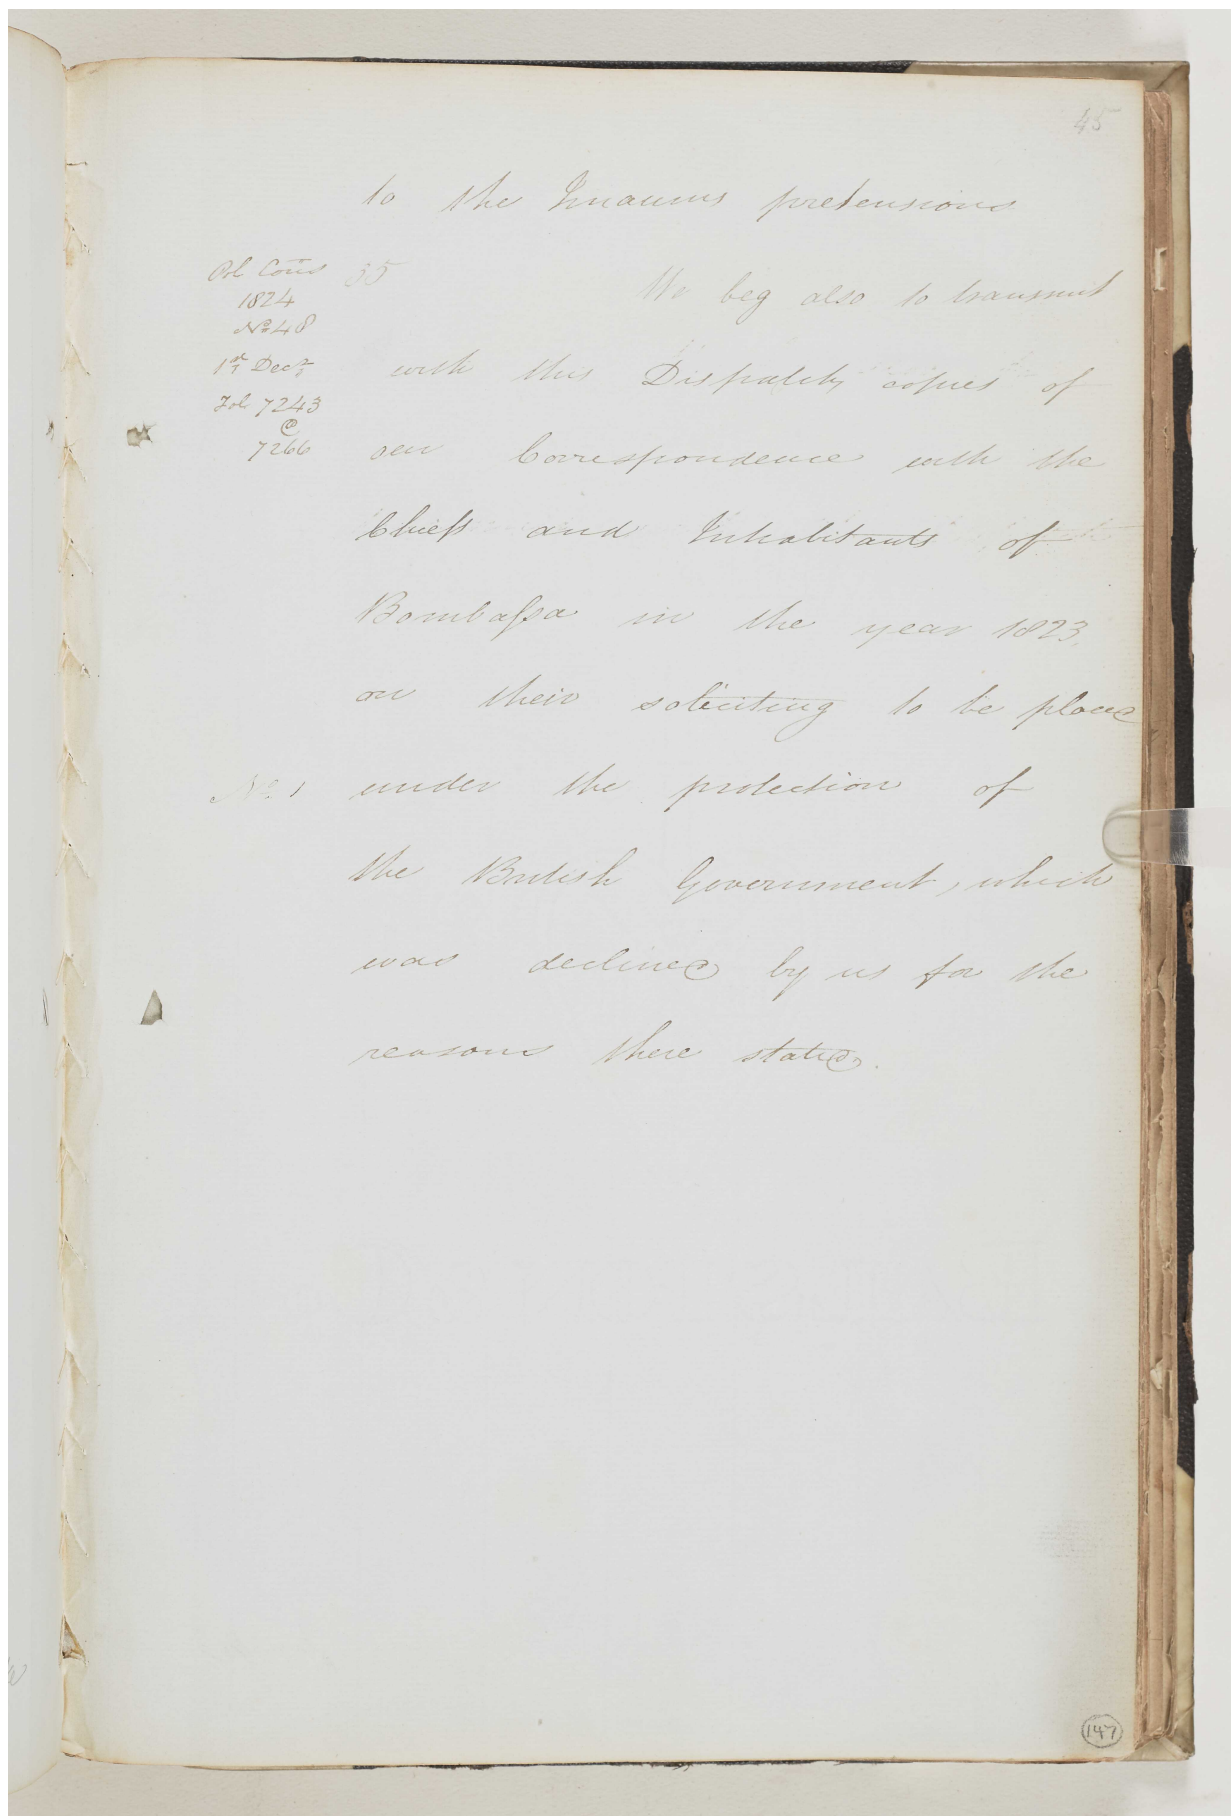 45
to the Imaums pretensions
Pol Cons
1824
No 48
1st Decr
Fol 7243
@
7266
35 We beg also to transmit
with this Dispatch copies of
our Correspondence with the
Chiefs and Inhabitants of
Bombassa in the year 1823
on their soliciting to be placed
No. 1
under the protection of
the British Government, which
was declined by us for the
reasons there stated.
147